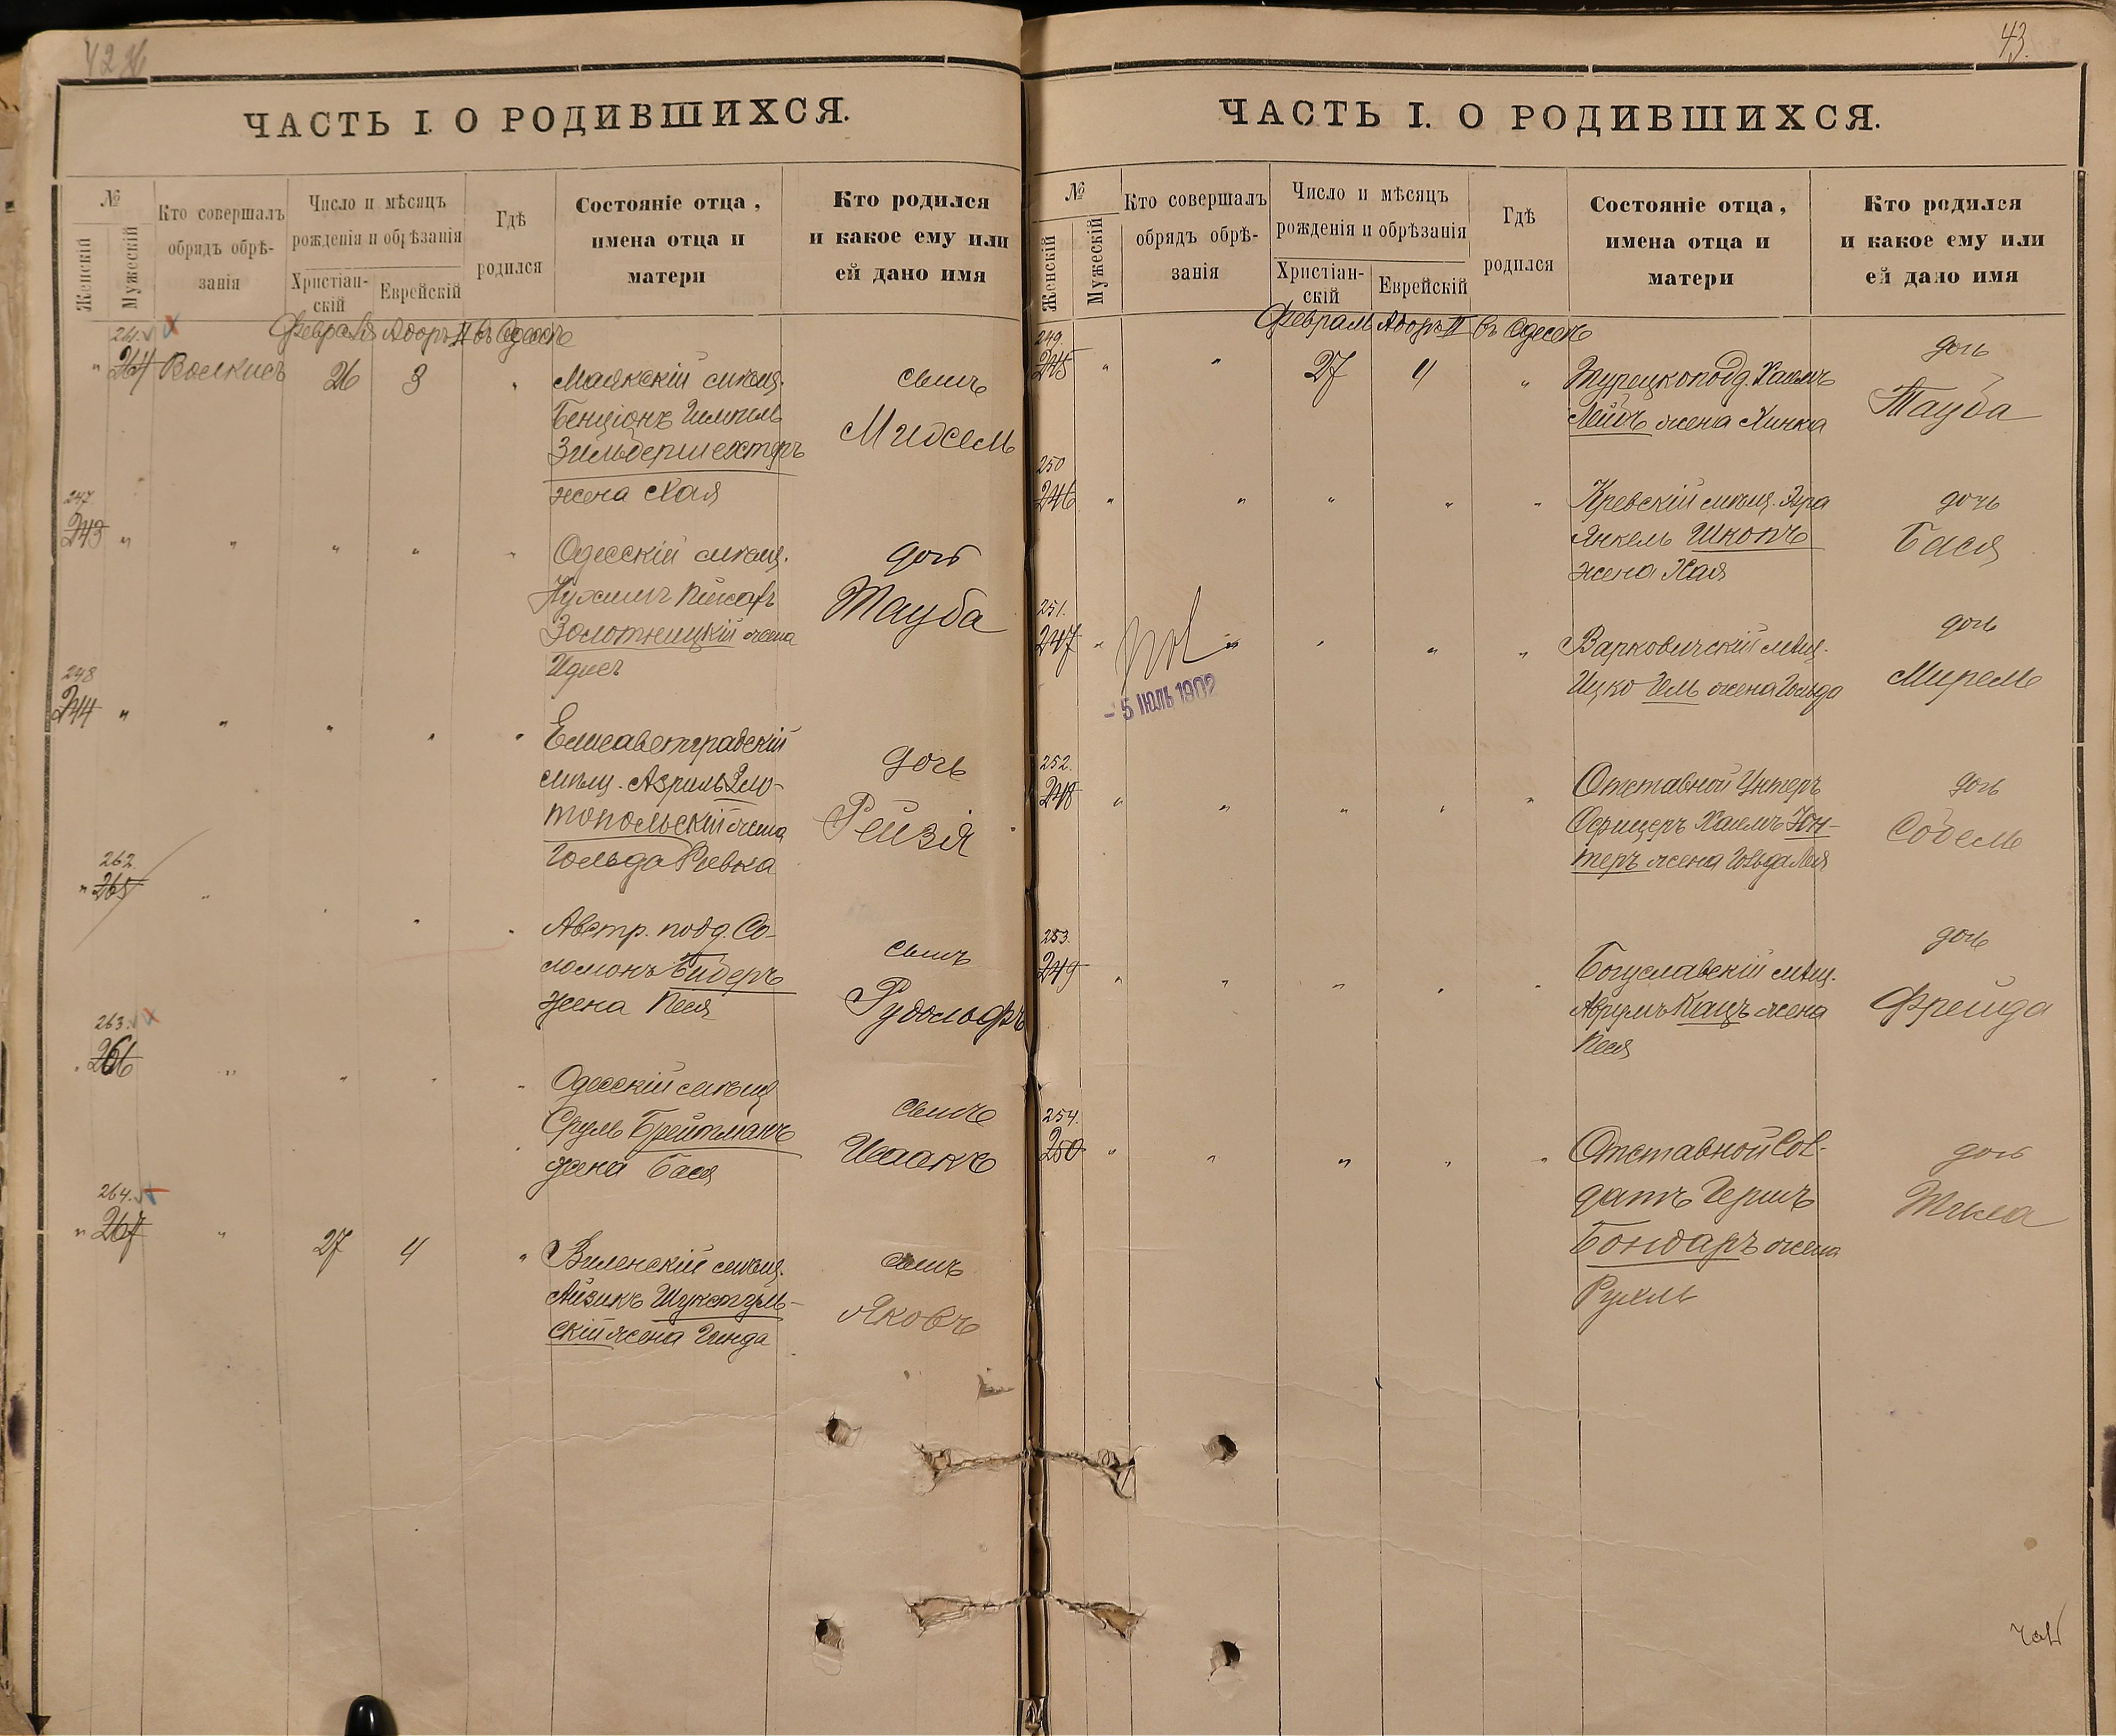 42
ЧАСТЬ I. О РОДИВШИХСЯ.
№
Женскій
Мужескій
Кто совершалъ
обрядъ обрѣ-
занія
Число и мѣсяцъ
рожденія и обрѣзанія
Христіан-
скій
Еврейскій
Гдѣ
родился
Состояніе отца,
имена отца и
матери
Кто родился
и какое ему или
ей дано имя
Февраля Адоръ II въ Одессѣ
261.
" 264 Волкисъ 26 3 "
Маякскій мѣщ.
Бенціонъ Гимпель
Зильбершехтеръ
жена Хая
сынъ
Мидсем
247
243 " " " " "
Одесскій мѣщ.
Нухимъ
Золотницкій жена
Идесъ
дочь
Тауба
248
244 " " " " "
Елисаветградскій
мѣщ. Азриль Зло-
топольскій жена
Гольда Ривка
дочь
Рейзя
262.
" 265 " " " "
Австр. подд. Со-
ломонъ Бидеръ
жена Песя
сынъ
Рудольфъ
263.
" 266 " " " "
Одесскій мѣщ
Сруль Брейтманъ
жена Бася
сынъ
Исаакъ
264.
" 267 " 27 4 "
Виленскій мѣщ.
Айзикъ Шукстуль-
скій жена Гинда
сынъ
Яковъ
43.
ЧАСТЬ I. О РОДИВШИХСЯ.
№
Женскій
Мужескій
Кто совершалъ
обрядъ обрѣ-
занія
Число и мѣсяцъ
рожденія и обрѣзанія
Христіан-
скій
Еврейскій
Гдѣ
родился
Состояніе отца,
имена отца и
матери
Кто родился
и какое ему или
ей дано имя
Февраль Адоръ II въ Одессѣ
249.
245 " " 27 4 "
Турецкопод. Хаимъ
Лейбъ жена Хинка
дочь
Тауба
250
246 " " " " "
Кревскій мѣщ.
Янкель Шкопъ
жена Хая
дочь
Бася
251.
247 " " " " "
- 5 ІЮЛЬ 1902
Варковичскій мѣщ.
Ицко Гель жена Гольда
дочь
Мирель
252.
248 " " " " "
Отставной Унтеръ
Офицеръ Хаимъ Юн-
теръ жена Гольда Лея
дочь
Собель
253.
249 " " " " "
Богуславскій мѣщ.
Аврумъ Кацъ жена
Песя
дочь
Фрейда
254.
250 " " " " "
Отставной Сол-
датъ Гершъ
Бондаръ жена
Рухль
дочь